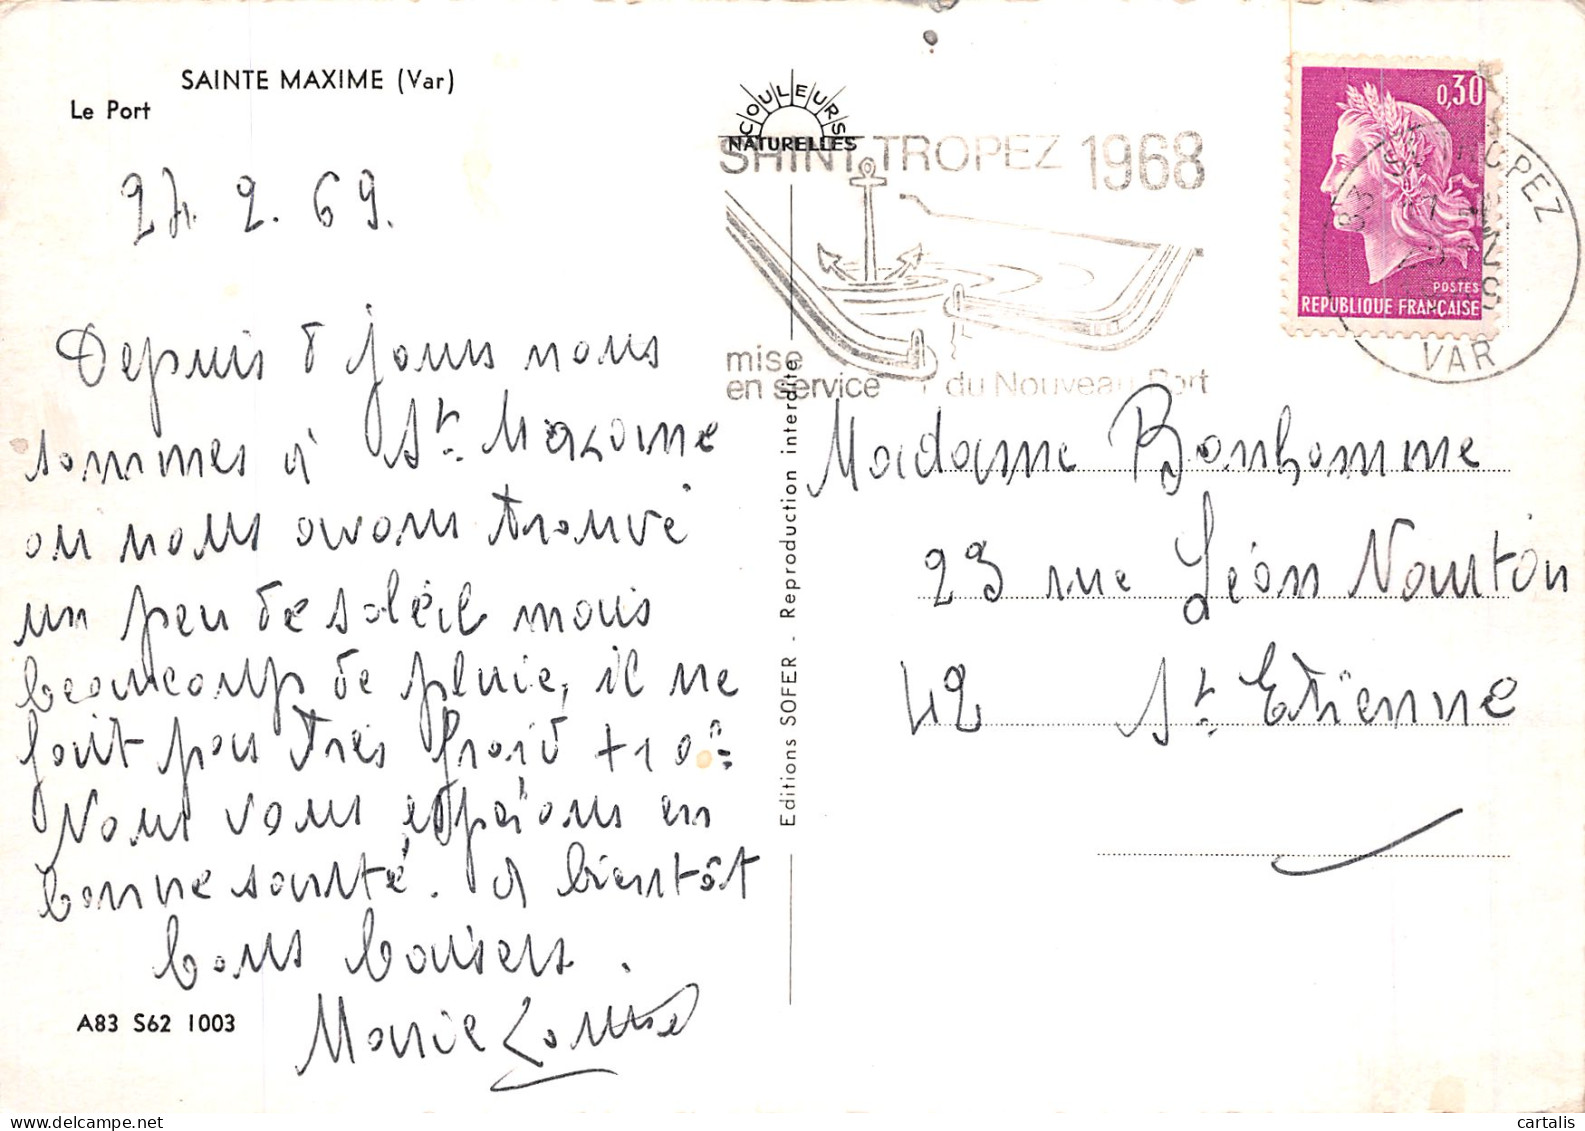 SAINTE MAXIME (Var)
Le Port
24. 2. 69.
Depuis 8 jours nous
sommes à St. Maxime
ou nous avons trouvé
un peu de soleil mais
beaucoup de pluie, il ne
fait pas très froid +10°=
Nous vous espérons en
bonne santé. A bientôt
bons baisers.
Marie Louise
A83 S62 1003
COULEURS
NATURELLES
Editions SOFER - Reproduction interdite
SAINT TROPEZ 1968
mise
en service du Nouveau Port
0,30
POSTES
REPUBLIQUE FRANÇAISE
83 ST TROPEZ
VAR
Madame Bonhomme
23 rue Léon Nautin
42 St. Etienne
cartalis